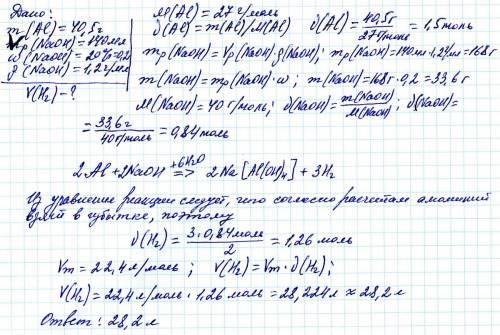 Дано:
m(Al)=40,5г
Vр(NaOH)=140мл
ω(NaOH)=20%=0,2
ρ(NaOH)=1,2г/мл
V(H₂)-?
M(Al)=27г/моль
ν(Al)=m(Al)/M(Al) ν(Al)=40,5г/27г/моль=1,5моль
mр(NaOH)=Vр(NaOH)·ρ(NaOH); mр(NaOH)=140мл·1,2г/мл=168г
m(NaOH)=mр(NaOH)·ω; m(NaOH)=168г·0,2=33,6г
M(NaOH)=40г/моль; ν(NaOH)=m(NaOH)/M(NaOH); ν(NaOH)=
=33,6г/40г/моль=0,84моль
2Al+2NaOH+6H₂O⇒2Na[Al(OH)₄]+3H₂
Из уравнения реакции следует, что согласно расчетам алюминий
взят в избытке, поэтому
ν(H₂)=3·0,84моль/2=1,26 моль
Vm=22,4л/моль; V(H₂)=Vm·ν(H₂);
V(H₂)=22,4л/моль·1,26моль=28,224л≈28,2л
Ответ: 28,2л